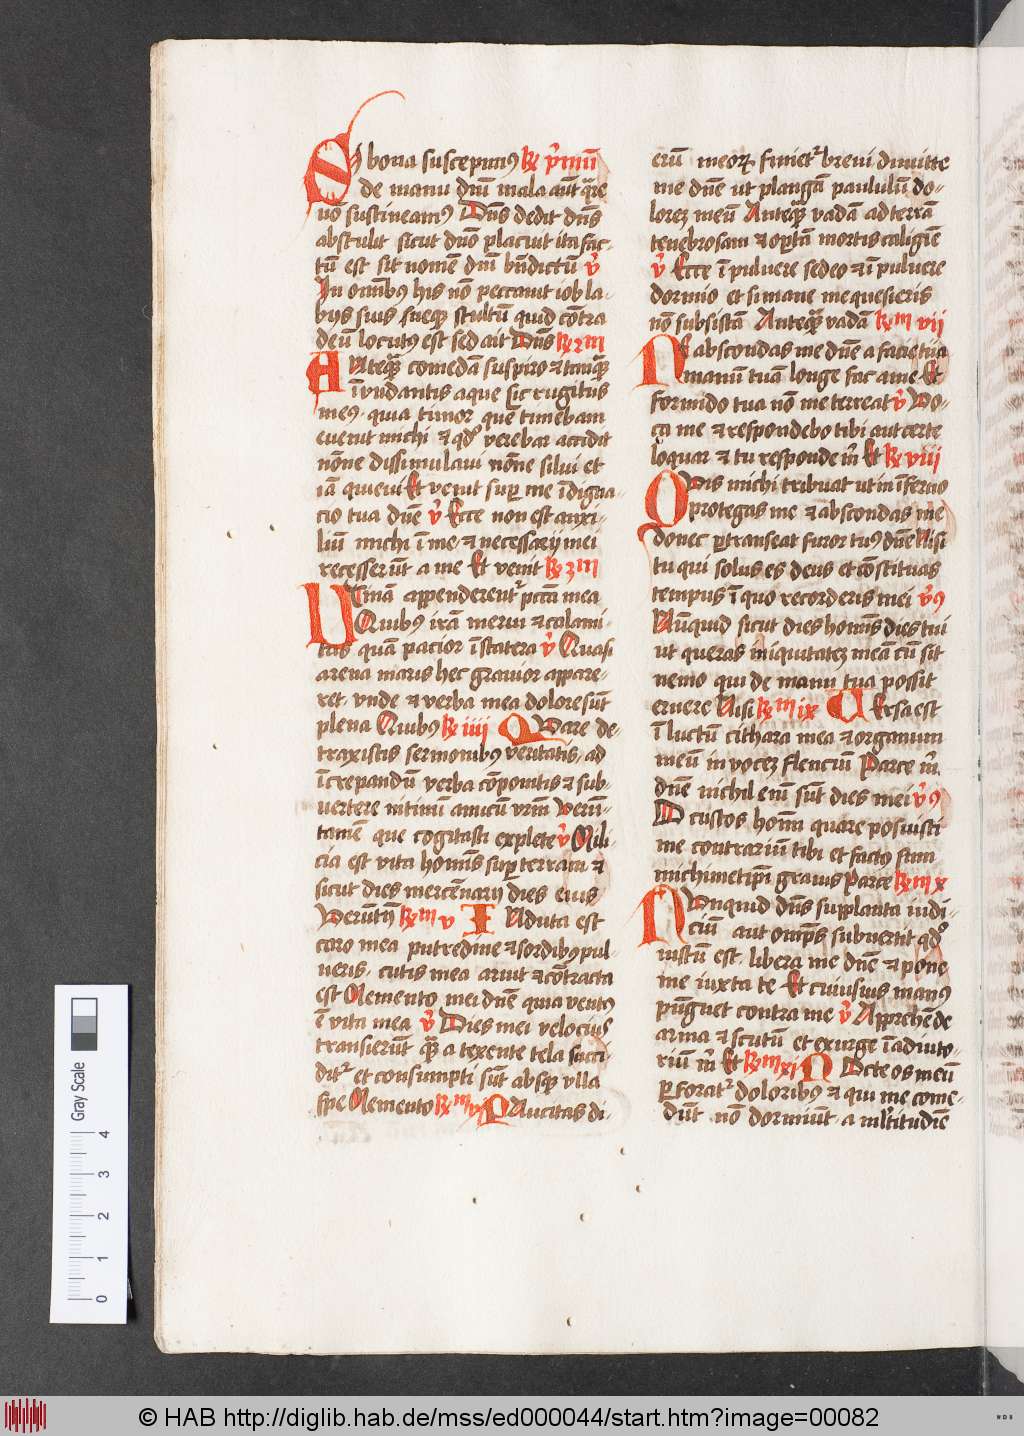 SI bona suscepimus ℞ p̄imū
de manu dn̄i mala aūt qͣre
nō sustineamꝰ Dn̄s dedit dn̄s
abstulit sicut dn̄o placuit ita fac-
tū est sit nomē dn̄i bn̄dictū v̄
In omībꝰ his nō peccauit iob la-
bijs suis neqꝫ stultū quid cōtra
deū locutꝰ est sed ait Dn̄s ℞ 2m
ANteqͣꝫ comedā suspiro ⁊ tanqͣꝫ
īundantis aque sic rugitus
meꝰ quia timor quē timebam
euenit michi ⁊ qdͦ verebar accidit
nōne dissimulaui nōne silui et
iā quieui Et venit sup̱ me īdigna-
cio tua dn̄e v̄ Ecce non est auxi-
liū michi ī me ⁊ necessarij mei
recesserūt a me Et venit ℞ 3m
VTinā appenderent᷑ pctā mea
Quibꝰ irā merui ⁊ calami-
tas quā pacior ī statera v̄ Quasi
arena maris hec grauior appare-
ret vnde ⁊ verba mea dolore sūt
plena Quibꝰ ℞ iiii QVare de-
traxistis sermonibꝰ veritatis ad
īcrepandū verba cōponitis ⁊ sub-
uertere nitimī amicū vr̄m Verū-
tamē que cogitasti explete v̄ Mili-
cia est vita homīs sup̱ terram ⁊
sicut dies mercēnarij dies eius
Verūtn̄ ℞ m v INduta est
caro mea putredine ⁊ sordibꝰ pul-
ueris cutis mea aruit ⁊ cōtracta
est Memento mei dn̄e quia ventꝰ
ē vita mea v̄ Dies mei velociꝰ
transierūt qͣꝫ a texente tela succi-
dit᷑ et consumpti sūt absqꝫ vlla
spe Memento ℞ m vi PAucitas di-
erū meoꝝ finiet᷑ breui dimitte
me dn̄e ut plangā paululū do-
lorez meū Anteqͣꝫ vadā ad terrā
tenebrosam ⁊ op̱tā mortis caligīe
v̄ Ecce ī puluere sedeo ⁊ ī puluere
dormio et si mane me quesieris
nō subsistā Anteqͣꝫ vadā ℞ m vii
NE abscondas me dn̄e a facie tua
manū tuā longe fac a me Et
formido tua nō me terreat v̄ Vo-
ca me ⁊ respondebo tibi aut certe
loquar ⁊ tu responde m̄ Et ℞ viii
QVis michi tribuat ut in īferno
protegas me ⁊ abscondas me
donec p̱transeat furor tuꝰ dn̄e Nisi
tu qui solus es deus et cōstituas
tempus ī quo recorderis mei v̄ꝰ
Nūquid sicut dies homīs dies tui
ut queras iniquitatez meā cū sit
nemo qui de manu tua possit
eruere Nisi ℞ m ix VErsa est
ī luctū cithara mea ⁊ organum
meū in vocez flenciū Parce m̄
dn̄e nichil enī sūt dies mei v̄ꝰ
O custos homī quare posuisti
me contrariū tibi et factꝰ sum
michimetip̄i grauis Parce ℞ m x
NVnquid dn̄s supplanta iudi-
ciū aut omp̄s subuertit qdͦ
iustū est libera me dn̄e ⁊ pone
me iuxta te Et cuiusuis manꝰ
pūgnet contra me v̄ Apprehēde
arma ⁊ scutū et exurge ī adiuto-
riū m̄ Et ℞ m xi NOcte os meū
p̱forat᷑ doloribꝰ ⁊ qui me come-
dūt nō dormiūt a ml̄titudīe
4
3
2
1
0
Gray Scale
© HAB http://diglib.hab.de/mss/ed000044/start.htm?image=00082